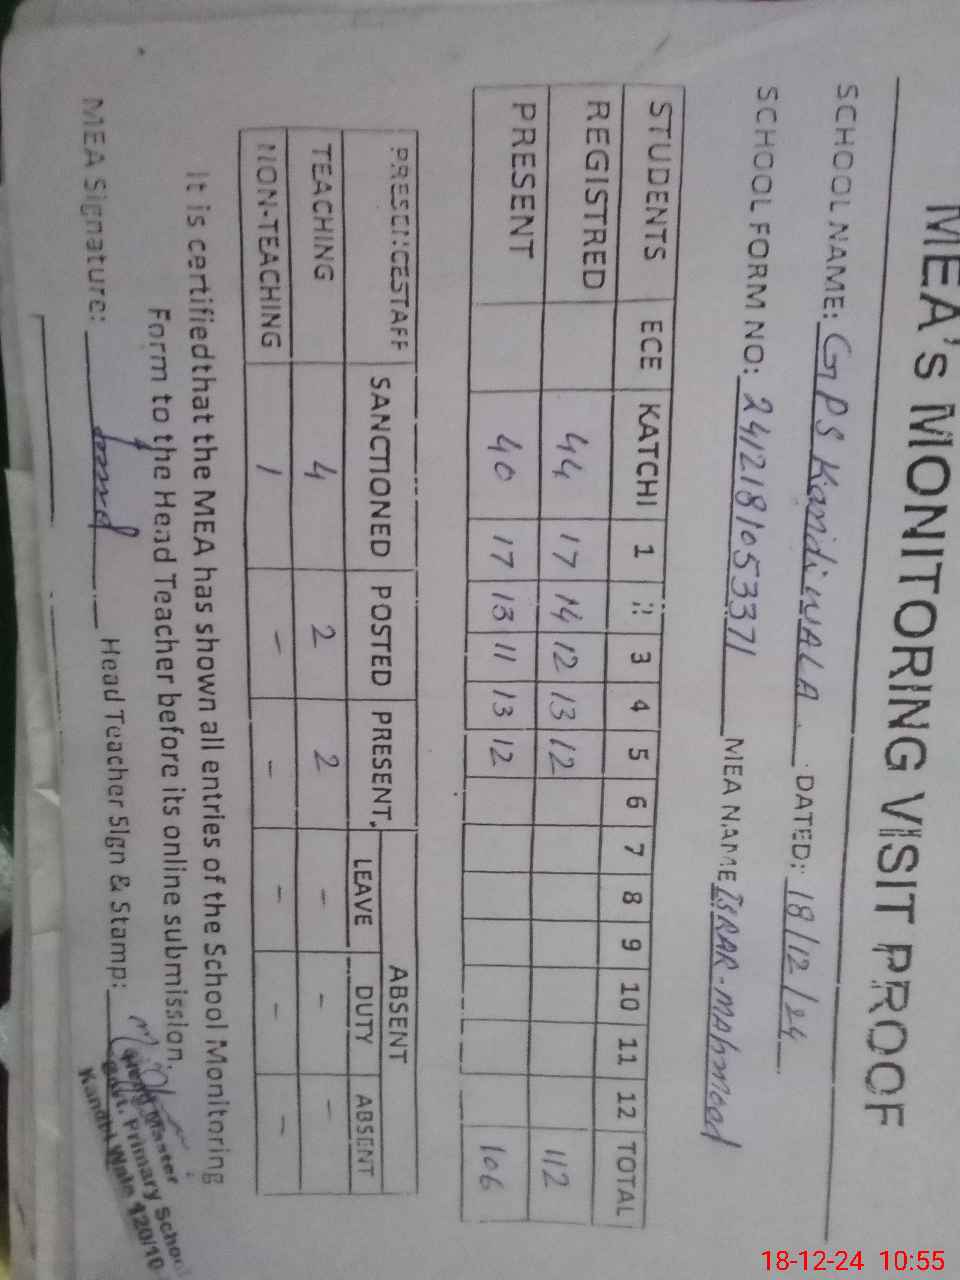 MEA's MONITORING VISIT PROOF
SCHOOL NAME: GPS Kandiwala. DATED: 18/12/24
SCHOOL FORM NO: 2412181053371 MEA NAME ISRAR-MAhmood
STUDENTS ECE KATCHI 1 2 3 4 5 6 7 8 9 10 11 12 TOTAL
REGISTRED 44 17 14 12 13 12 112
PRESENT 40 17 13 11 13 12 106
PRESENCESTAFF SANCTIONED POSTED PRESENT. ABSENT
LEAVE DUTY ABSENT
TEACHING 4 2 2 - - -
NON-TEACHING 1 - - - - -
It is certifiedthat the MEA has shown all entries of the School Monitoring
Form to the Head Teacher before its online submission.
MEA Signature: Head Teacher Sign & Stamp:
Head Master
Govt. Primary School
Kandhi Wala 120/10
18-12-24 10:55